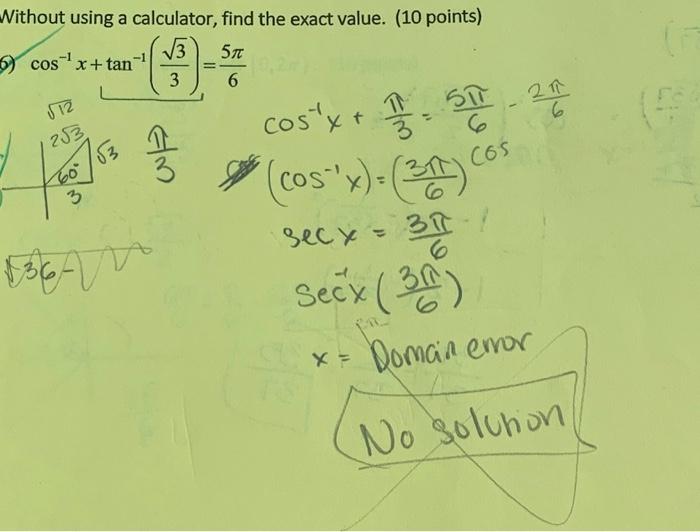 Without using a calculator, find the exact value. (10 points)
6) cos⁻¹ x + tan⁻¹ (√3/3) = 5π/6
√12
2√3
√3
60°
3
π/3
√36 -
cos⁻¹x + π/3 = 5π/6 - 2π/6
(cos⁻¹x) = (3π/6) cos
sec x = 3π/6
sec⁻¹x (3π/6)
x = Domain error
No solution